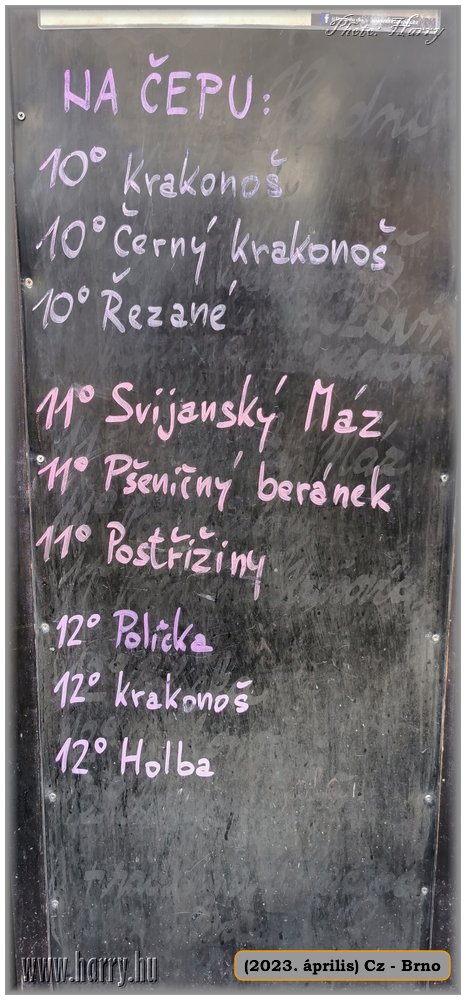 Photo: Harry
NA ČEPU:
10° Krakonoš
10° Černý krakonoš
10° Řezané
11° Svijanský Máz
11° Pšeničný beránek
11° Postřižiny
12° Polička
12° krakonoš
12° Holba
www.harry.hu
(2023. április) Cz - Brno